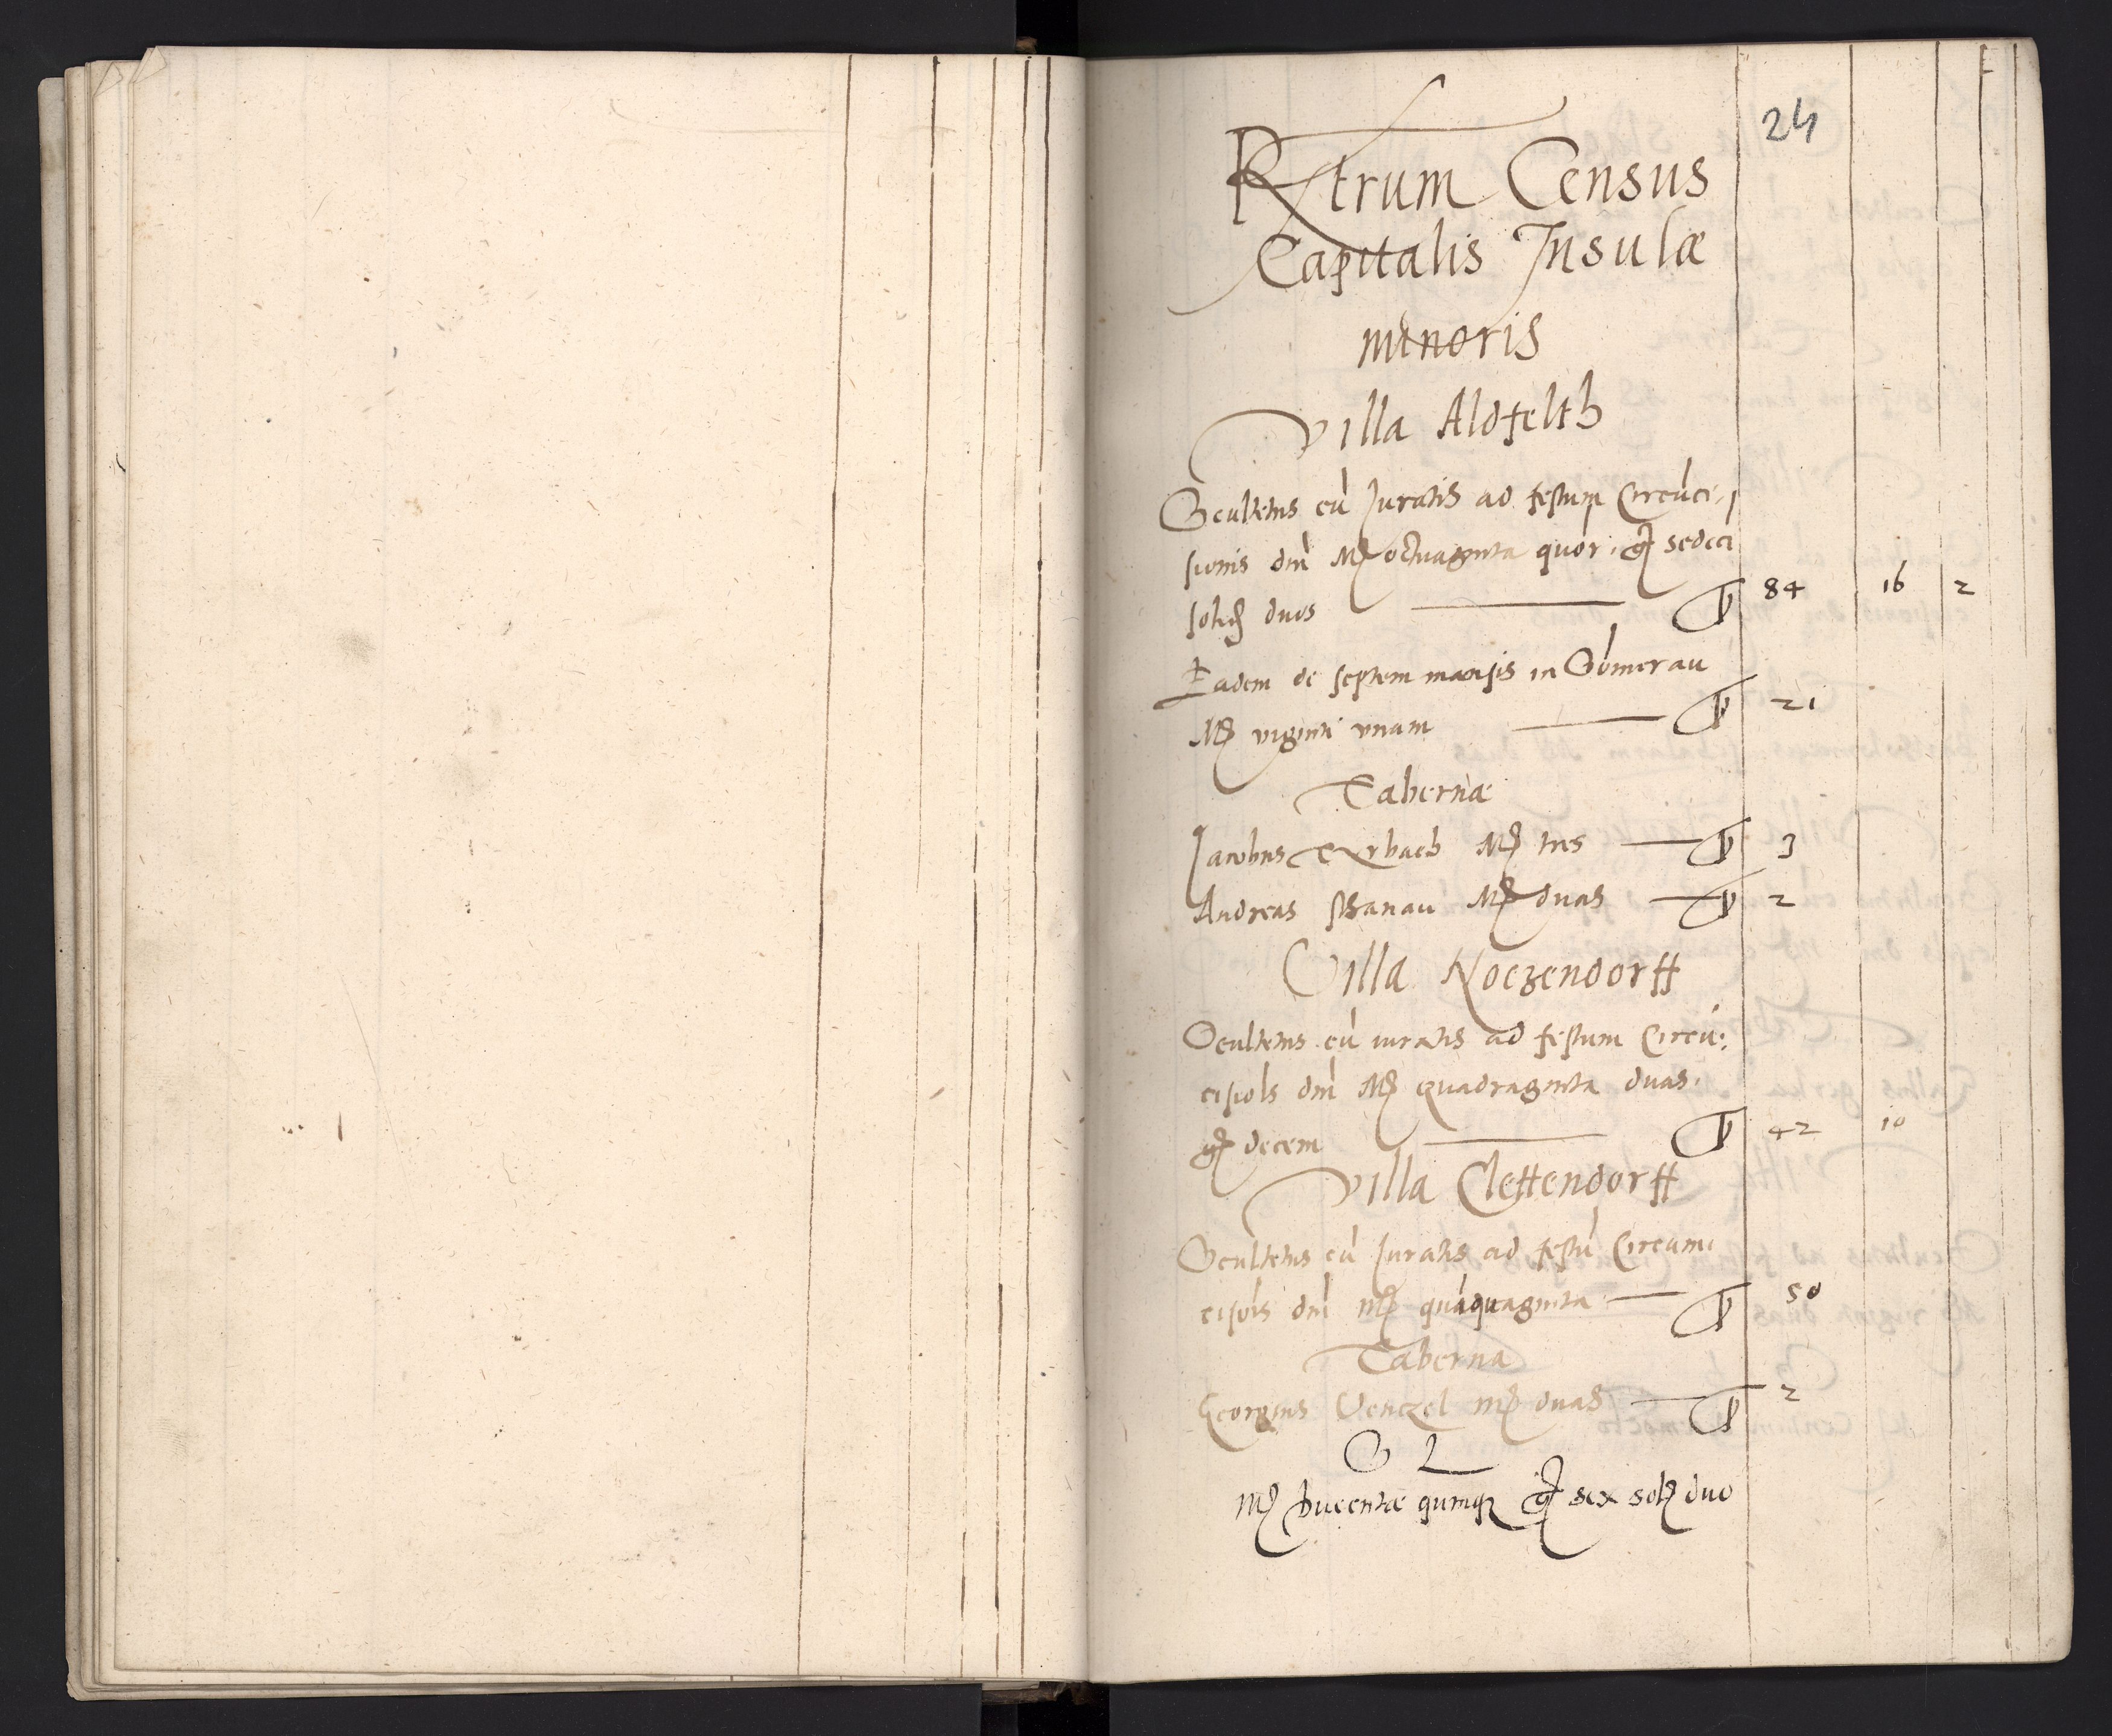 24
Rtrum Census
Capitalis Insulæ
minoris
Villa Aldfelth
Scultetus cū Juratis ad festum Circūci-
sionis dni Mr octuaginta quor. gr sedeci
solid duos 84 16 2
Eadem de septem mansis in Gömerau
Mr viginti vnam 21
Tabernæ
Jacobus Mr tres 3
Andreas Mr duas 2
Villa Koczendorff
Scultetus cū iuratis ad festum Circū:
cisiois dni Mr quadraginta duas.
gr decem 42 10
Villa Clettendorff
Scultetus cū Juratis ad festū Circum
cisiois dni Mr quīquaginta 50
Taberna
Georgius Venczel Mr duas 2
S L
Mr ducentæ quinqz gr sex sol duo